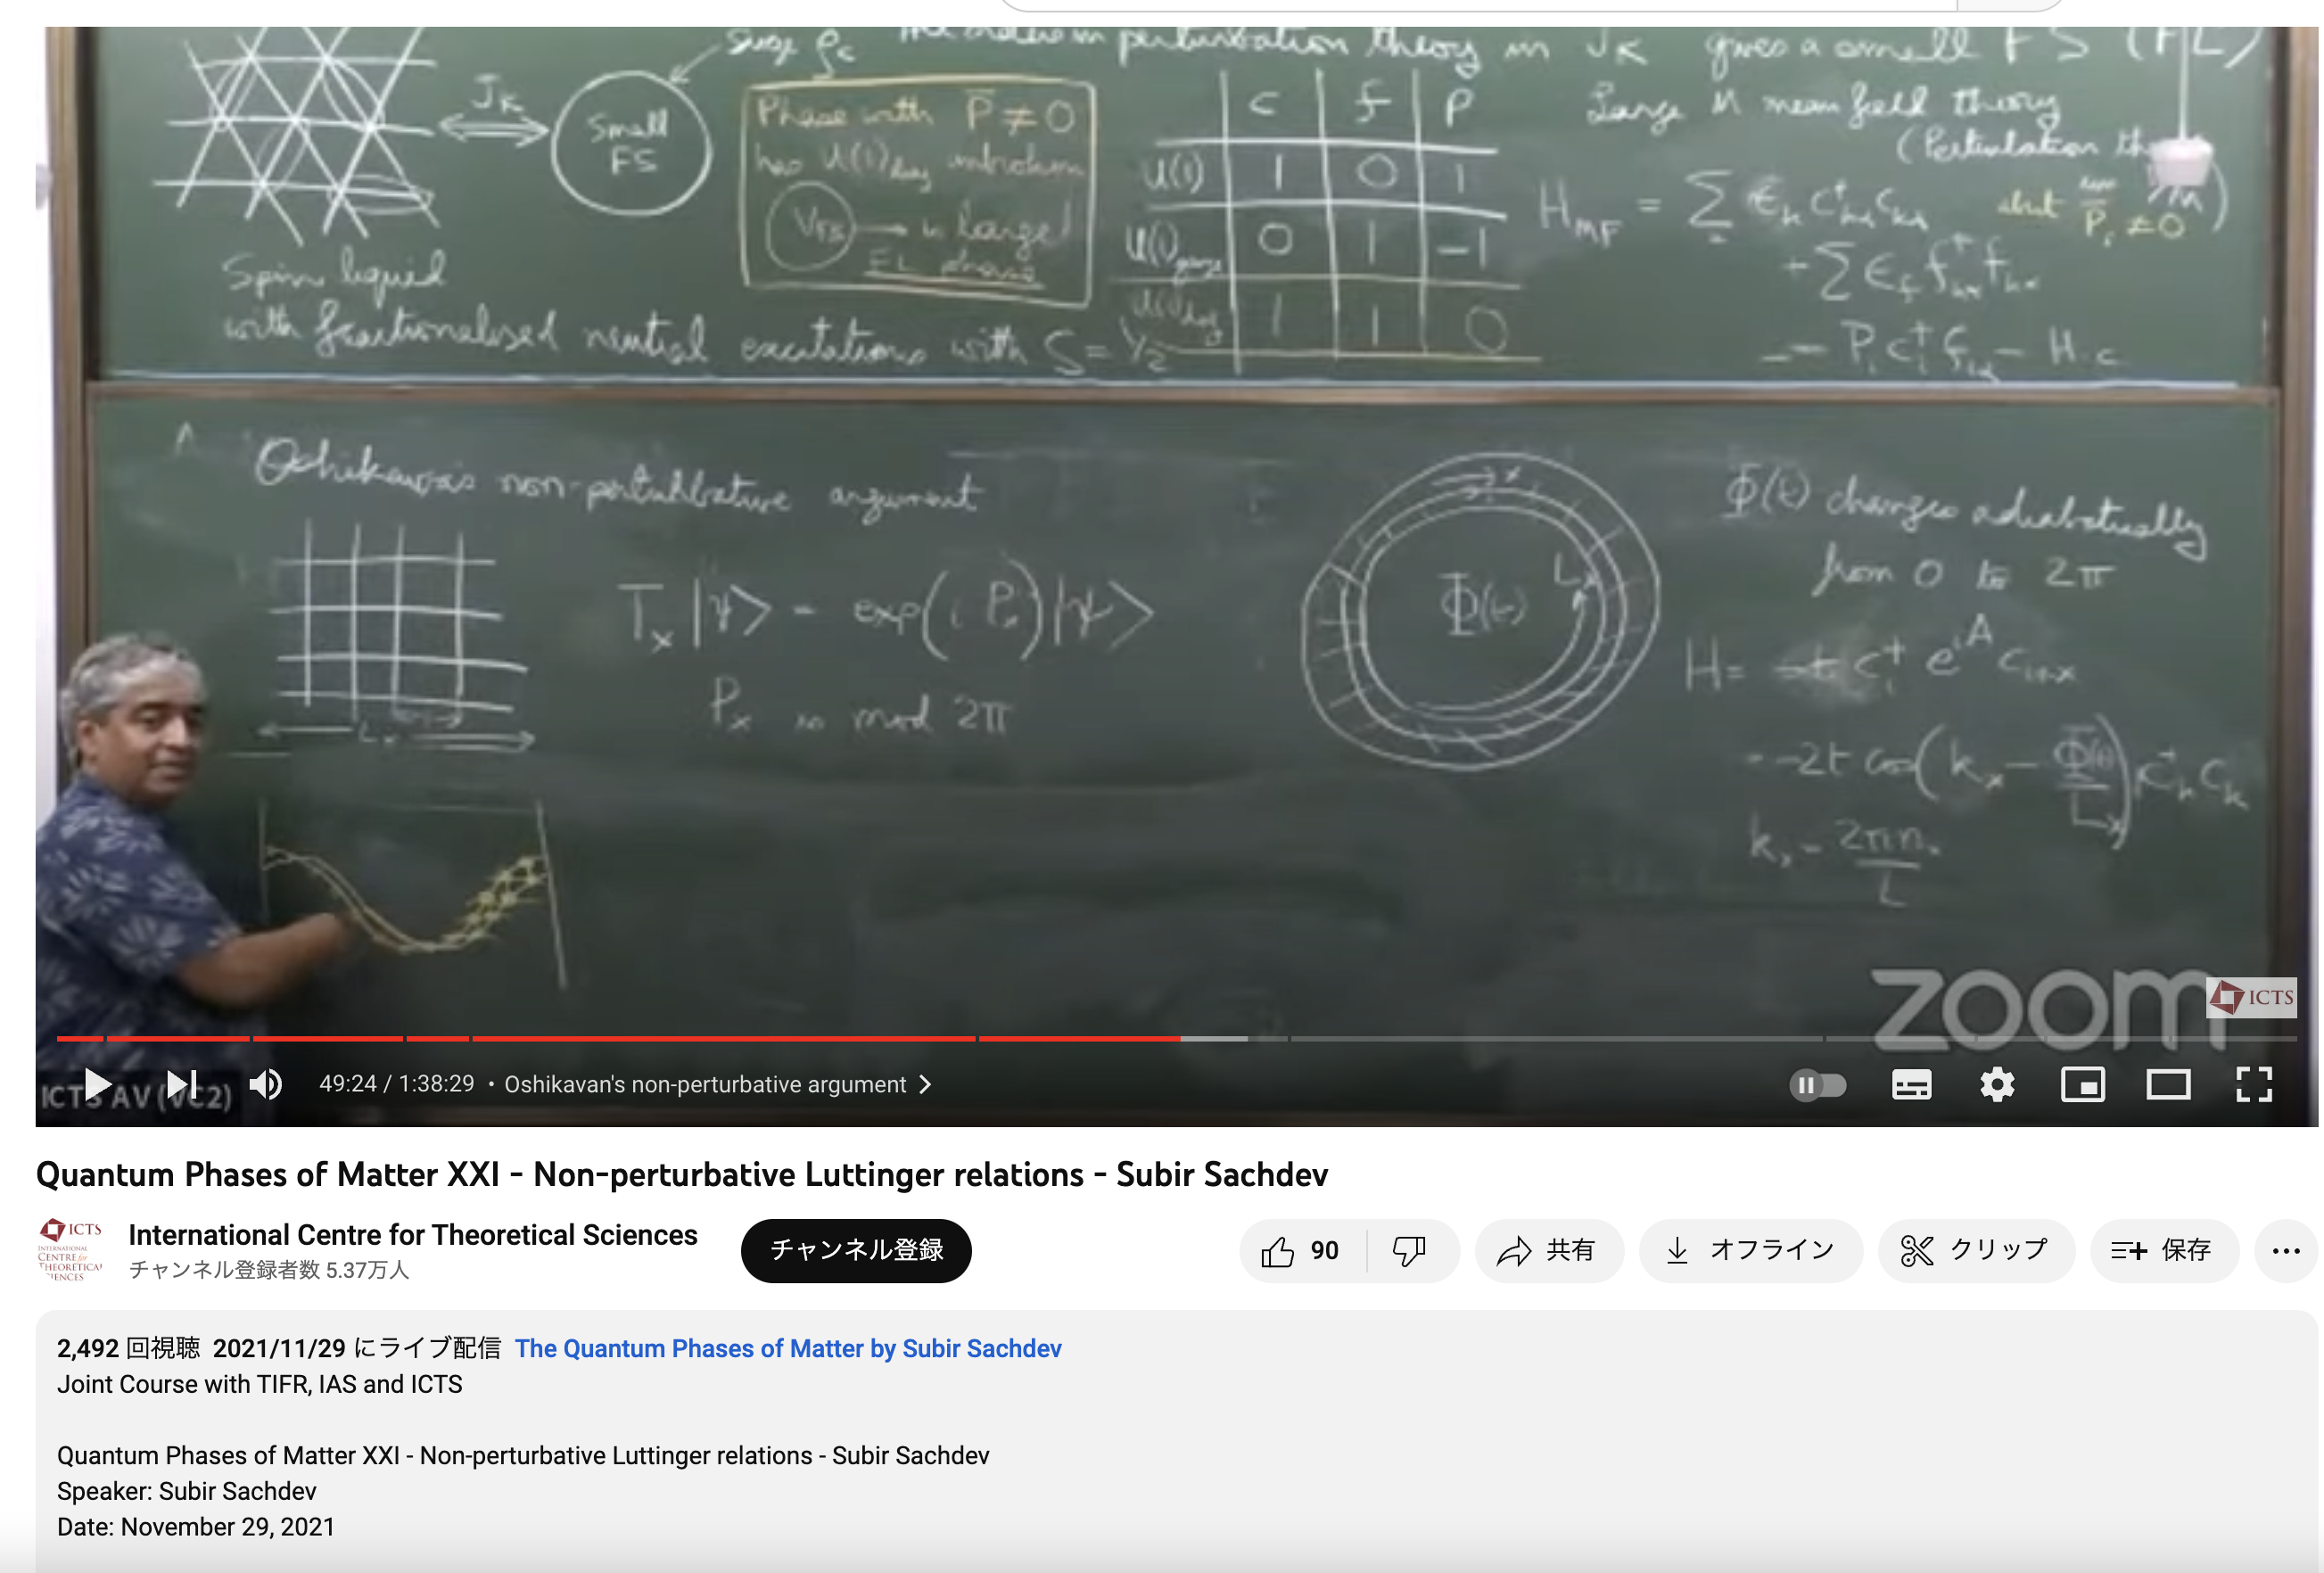 perturbation theory in J_K gives a small FS (FL)
J_K
Small
FS
Phase with P̄ ≠ 0
has U(1)
V_FS → is large!
FL phase
c f p
U(1) 1 0 1
U(1)gauge 0 1 -1
U(1)diag 1 1 0
Large M mean field theory
(Perturbation
H_MF = Σ ε_k c†_kα c_kα
P̄_i ≠ 0
+ Σ ε_f f†_kα f_kα
- P_i c†_i f_iα - H.c
Spin liquid
with fractionalised neutral excitations with S = 1/2
Oshikawa's non-perturbative argument
T_x |ψ> = exp(i P_x) |ψ>
P_x is mod 2π
L_x
x
Φ(t)
L_x
Φ(t) changes adiabatically
from 0 to 2π
H = -t c†_i e^{iA} c_{i+x}
= -2t cos(k_x - Φ(t)/L_x) c†_k c_k
k_x = 2πn_x/L
zoom
ICTS
ICTS AV (VC2)
49:24 / 1:38:29 • Oshikavan's non-perturbative argument
Quantum Phases of Matter XXI - Non-perturbative Luttinger relations - Subir Sachdev
ICTS
INTERNATIONAL
CENTRE for
THEORETICAL
SCIENCES
International Centre for Theoretical Sciences
チャンネル登録者数 5.37万人
チャンネル登録
90
共有
オフライン
クリップ
保存
2,492 回視聴 2021/11/29 にライブ配信 The Quantum Phases of Matter by Subir Sachdev
Joint Course with TIFR, IAS and ICTS
Quantum Phases of Matter XXI - Non-perturbative Luttinger relations - Subir Sachdev
Speaker: Subir Sachdev
Date: November 29, 2021